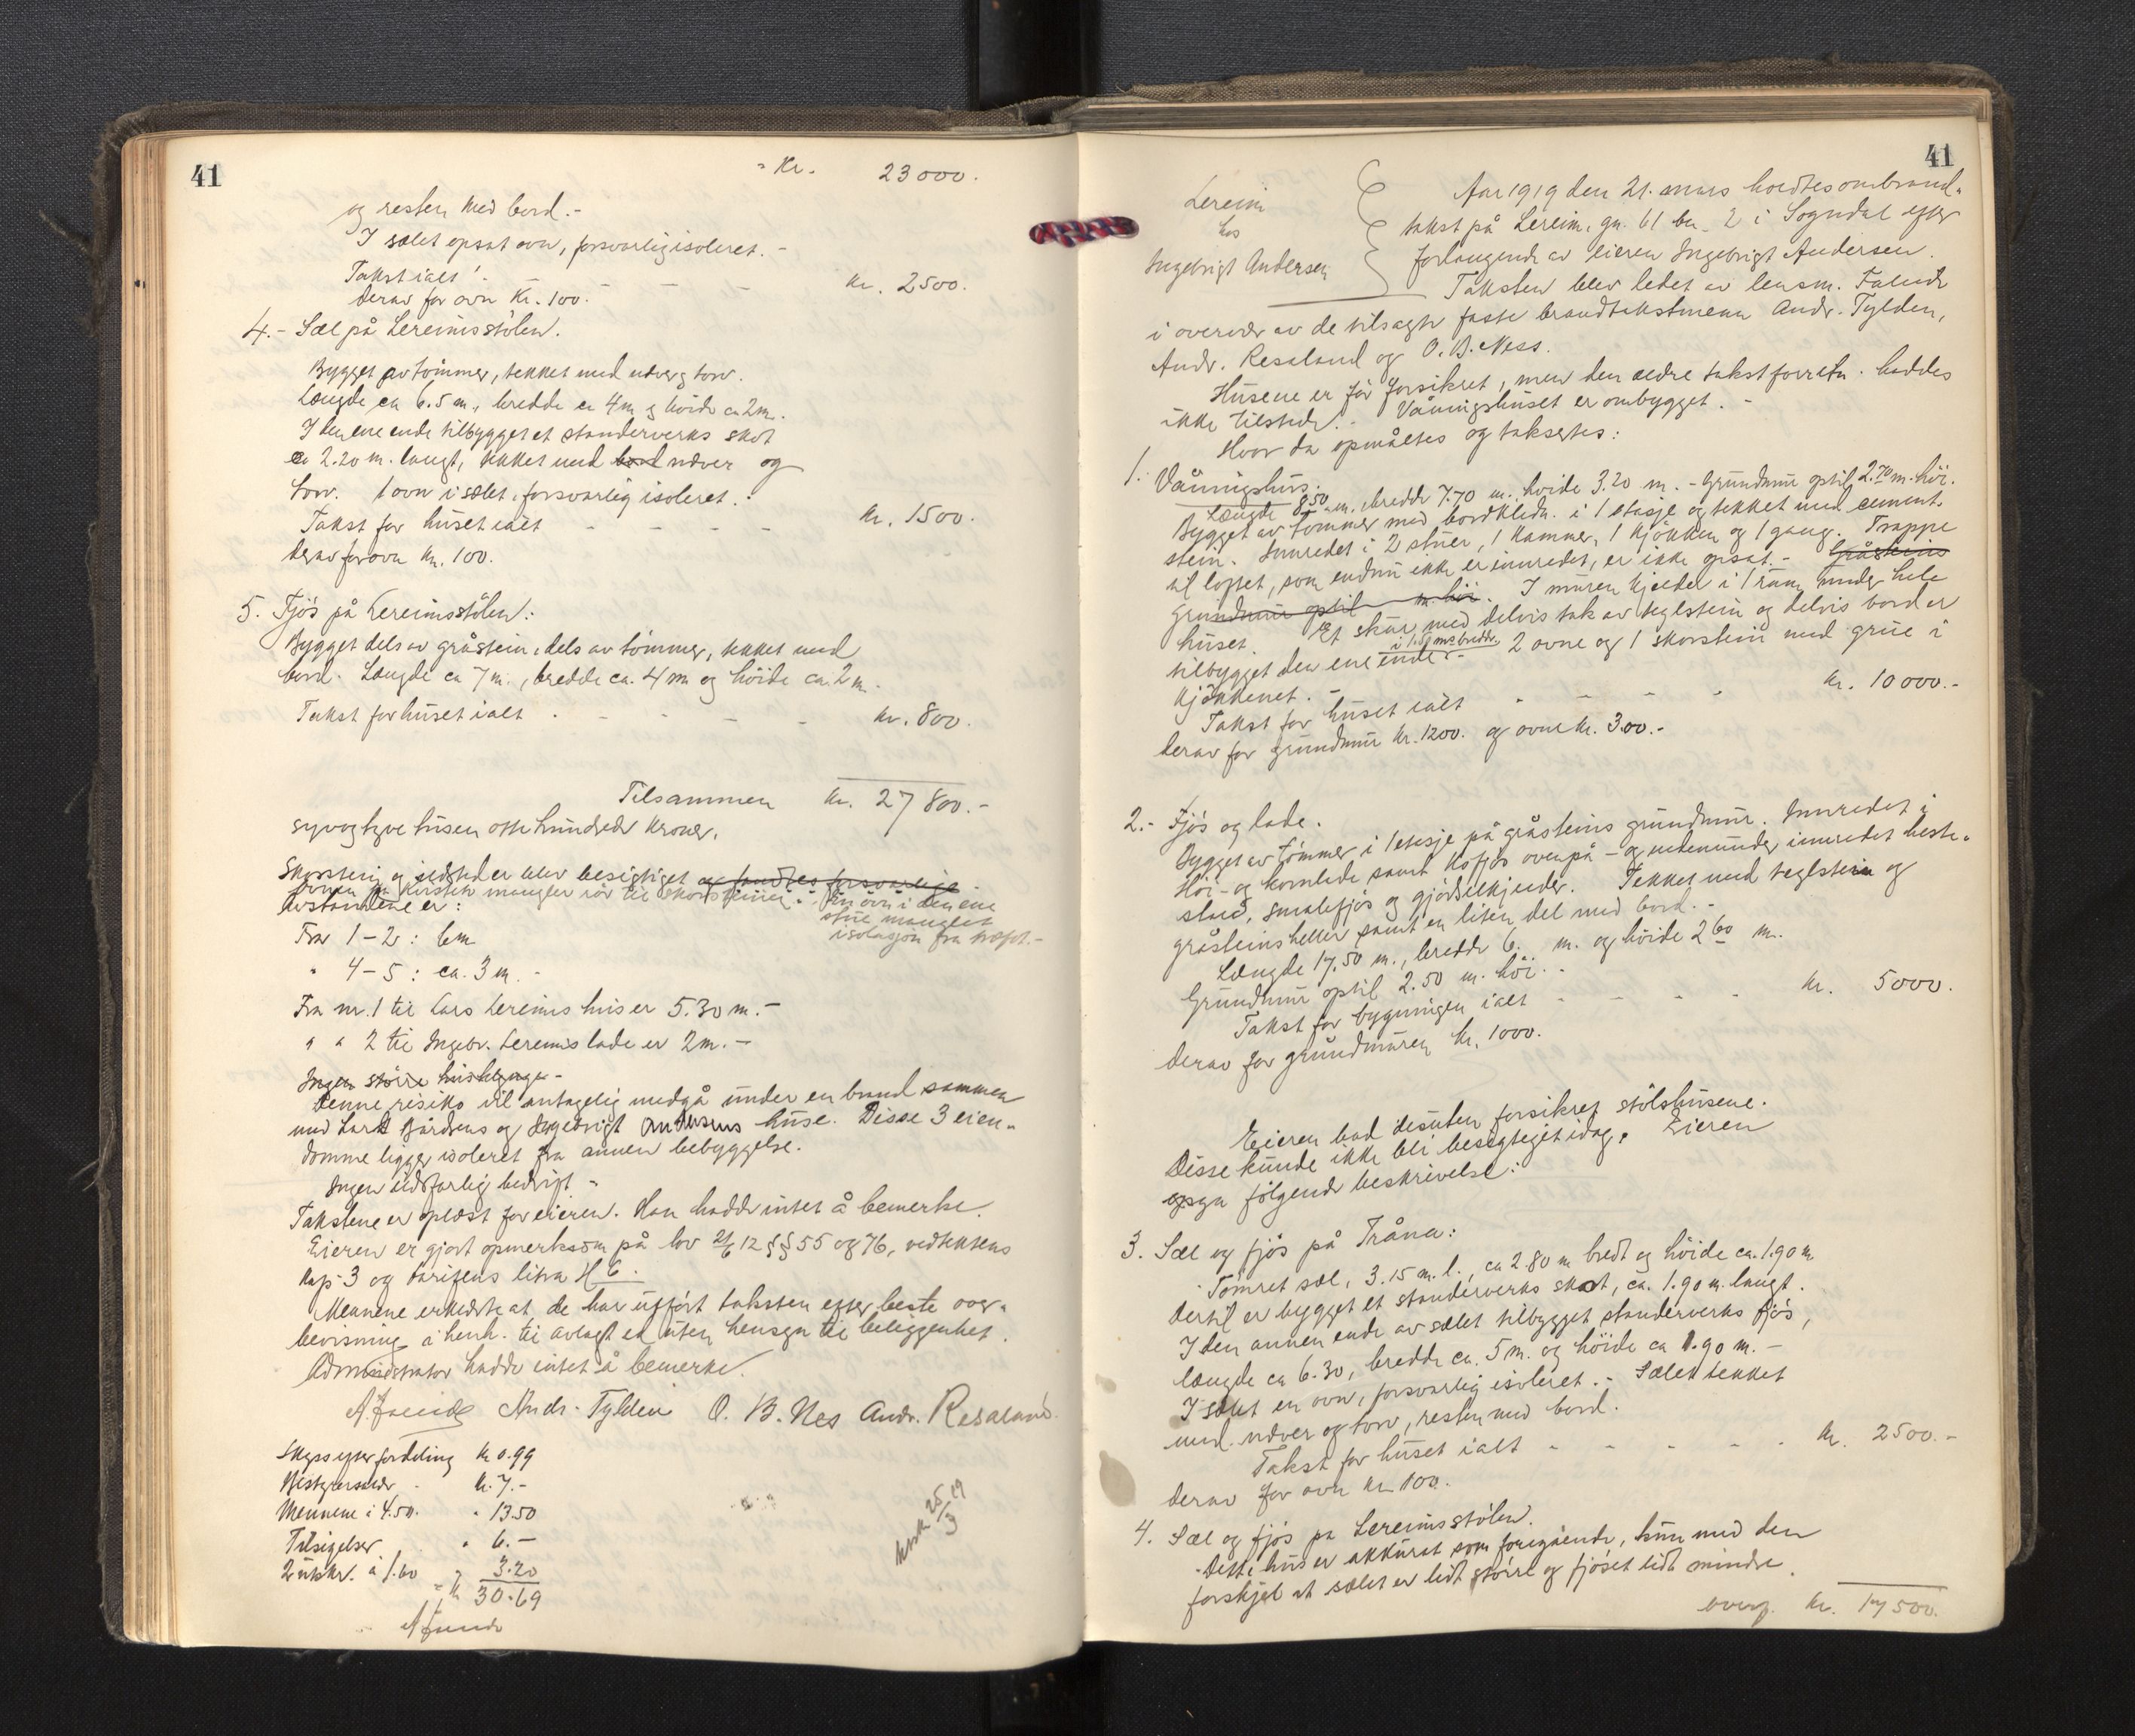 41
= Kr. 23000.
og resten med bord.-
I sælet opsat ovn, forsvarlig isoleret.-
Takst ialt - - - kr. 2500.
derav for ovn Kr. 100.-
4.- Sæl på Lereimsstølen.
Bygget av tømmer, tekket med næver og torv.
Længde ca 6.5 m., bredde ca 4m og høide ca 2m.
I den ene ende tilbygget et standerverks skot
ca 2.20 m. langt, tekket med bord næver og
torv. 1 ovn i sælet, forsvarlig isoleret.-
Takst for huset ialt - - - - kr. 1500.
derav for ovn kr. 100.
5. Fjøs på Lereimsstølen:
Bygget dels av gråstein, dels av tømmer, tekket med
bord. Længde ca 7m., bredde ca. 4 m og høide ca. 2m.
Takst for huset ialt - - - - kr. 800.
Tilsammen kr. 27800.-
syvogtyve tusen otte hundrede kroner.
Skorstein og ildsteder blev besigtiget og fandtes forsvarlige.
mangler rør til skorsteinen. En ovn i den ene
stue mangler
isolasjon fra
Avstandene er:
Fra 1-2: 6m
" 4-5: ca. 3m.-
Fra nr. 1 til Lars Lereims hus er 5.30 m.-
" " 2 til Ingebr. Lereims lade er 2m.-
Ingen større
Denne risiko vil antagelig medgå under en brand sammen
med Lars Bårdsens og Ingebrigt Andersens huse. Disse 3 eien-
domme ligger isoleret fra annen bebyggelse.
Ingen ildsfarlig bedrift -
Takstene er oplæst for eieren. Han hadde intet å bemerke.
Eieren er gjort opmerksom på lov 21/6 12 §§ 55 og 76, vedtektens
kap. 3 og tarifens litra H 6.
Mennene erklærte at de har utført taksten efter beste over-
bevisning i henh. til avlagt ed uten hensyn til beliggenhet.
Administrator hadde intet å bemerke.
A. Faleide Andr. Tylden O. B. Nes Andr. Resaland.
Skyss efter fordeling kr 0.99
kr. 7.-
Mennene i 4.50. " 13.50
Tilsigelser " 6.-
2 utskr. à 1.60 " 3.20
= kr 30.69
A Faleide
25/3 19
41
Lereim
hos
Ingebrigt Andersen
Aar 1919 den 21. mars holdtes ombrand-
takst på Lereim, gn. 61 bn. 2 i Sogndal efter
forlangende av eieren Ingebrigt Andersen.
Taksten blev ledet av lensm. Faleide
i overvær av de tilsagte faste brandtakstmenn Andr. Tylden,
Andr. Resaland og O. B. Ness.
Husene er før forsikret, men den ældre takstforretn. haddes
ikke tilstede.- Våningshuset er ombygget.-
Hvor da opmåltes og taksertes:
1. Våningshus.
Længde 8.50 m, bredde 7.70 m., høide 3.20 m.- Grundmur optil 2.70 m. høi.
Bygget av tømmer med bordklædn. i 1 etasje og tekket med cement-
stein. Innredet i 2 stuer, 1 kammer, 1 kjøkken og 1 gang. Trappe
til loftet, som endnu ikke er innredet, er ikke opsat.- Gråsteins
grundmur optil m. høi. I muren kjelder i 1 rum under hele
huset. Et skur, med delvis tak av teglstein og delvis bord er
tilbygget den ene ende.- i 1.50 mtr. bredde. 2 ovne og 1 skorstein med grue i
kjøkkenet.-
Takst for huset ialt - - - - kr. 10000.-
derav for grundmur kr. 1200. og ovne kr. 300.-
2.- Fjøs og lade.
Bygget av tømmer i 1 etasje på gråsteins grundmur. Innredet i
Høi- og kornlade samt kofjøs ovenpå - og nedenunder innredet heste-
stald, smalefjøs og gjødselkjelder. Tekket med teglstein og
gråsteinsheller samt en liten del med bord.-
Længde 17.50 m., bredde 6. m. og høide 2.60 m.
Grundmur optil 2.50 m. høi.-
Takst for bygningen ialt - - - - kr. 5000.
derav for grundmuren kr. 1000.
Eieren bad desuten forsikret stølshusene.
Disse kunde ikke bli besigtiget idag. Eieren
opga følgende beskrivelse:
3. Sæl og fjøs på Tråna:
Tømret sæl, 3.15 m. l., ca 2.80 m bredt og høide ca. 1.90 m
dertil er bygget et standerverks skot, ca. 1.90 m. langt.
I den annen ende av sælet tilbygget standerverks fjøs,
længde ca 6.30, bredde ca. 5 m. og høide ca 1.90 m.-
I sælet en ovn, forsvarlig isoleret.- Sælet tekket
med næver og torv, resten med bord.
Takst for huset ialt - - - - - kr. 2500.-
derav for ovn kr 100.
4. Sæl og fjøs på Lereimsstølen.
Dette hus er akkurat som foregående, kun med den
forskjel at sælet er lidt større og fjøset lidt mindre.
overg. kr. 17500.